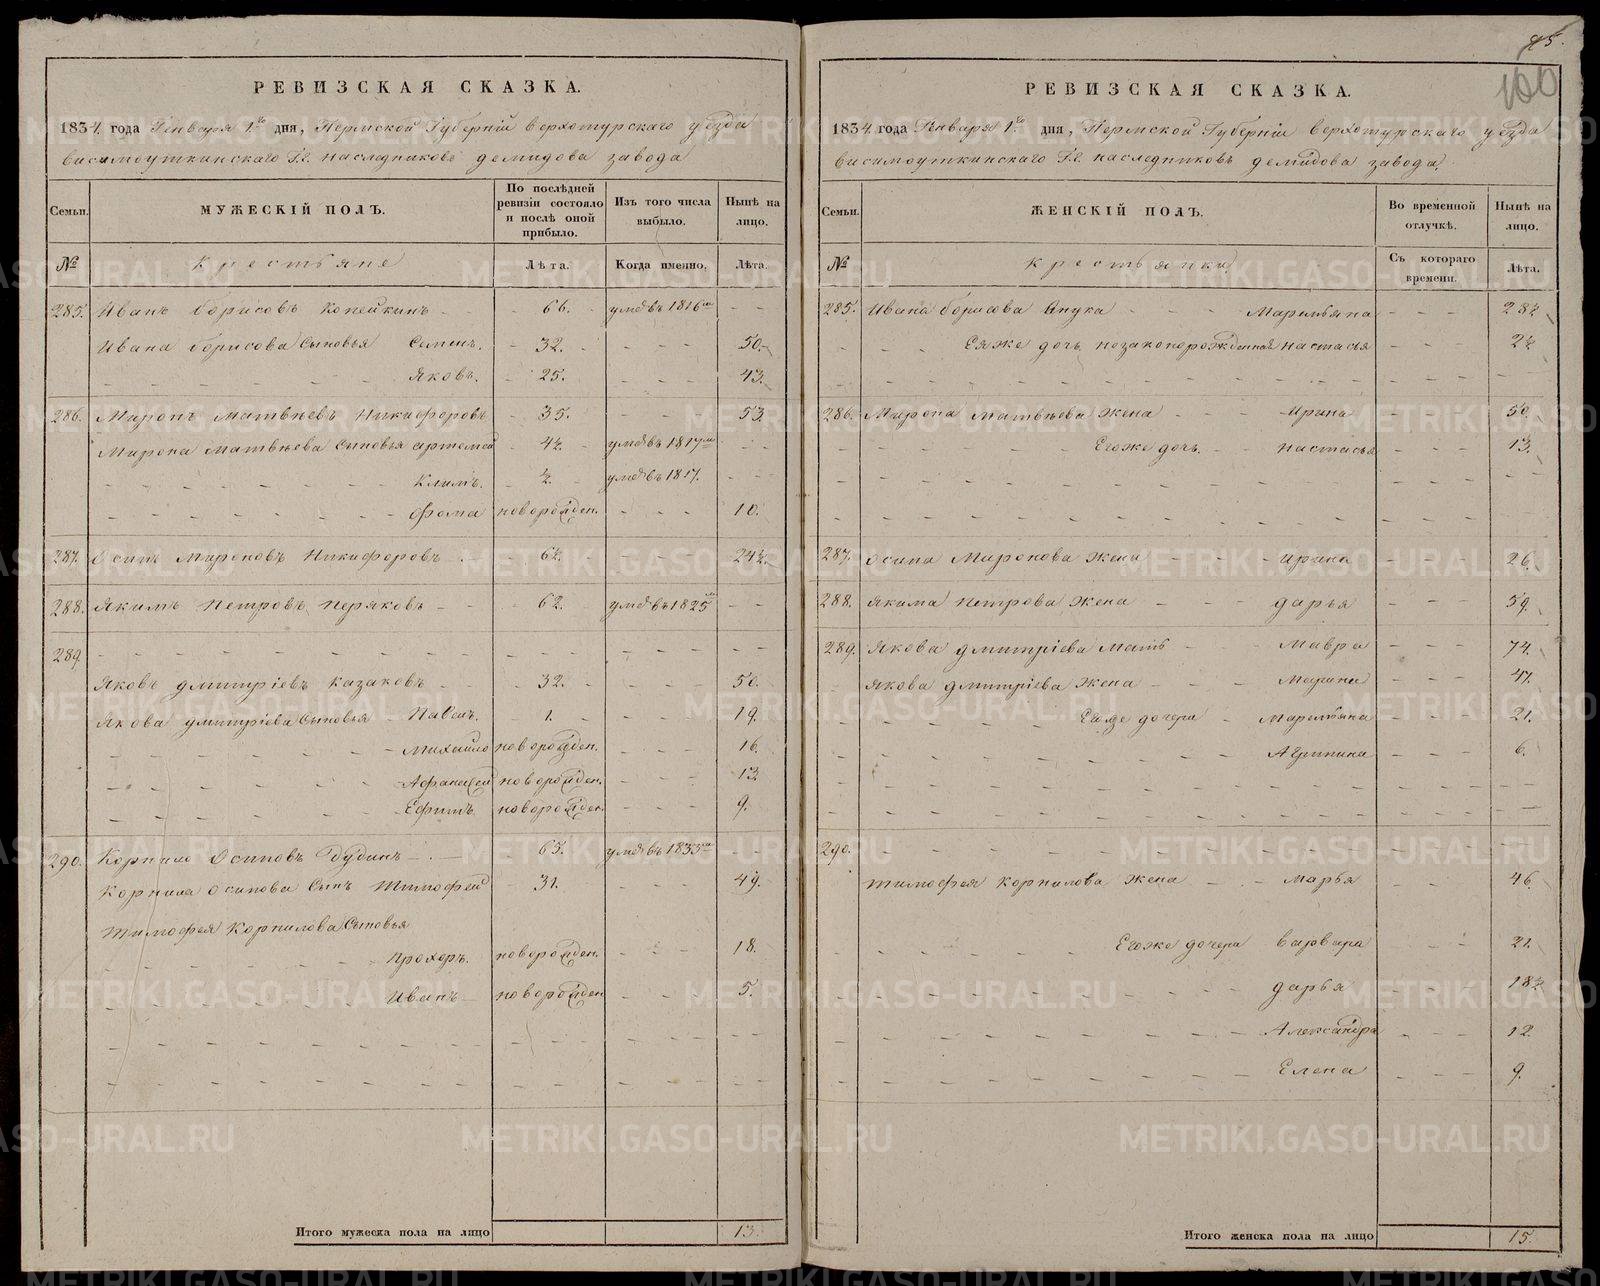 РЕВИЗСКАЯ СКАЗКА.
1834. года Генваря 1го дня, Пермской Губерніи верхотурскаго уезда
висимоуткинскаго Г.г. наследниковъ демидова завода
Семьи.
МУЖЕСКІЙ ПОЛЪ.
По послѣдней ревизіи состояло и послѣ оной прибыло.
Изъ того числа выбыло.
Нынѣ на лицо.
№
Крестьяне
Лѣта.
Когда именно.
Лѣта.
285. Иванъ борисовъ Копейкинъ 66. умеръ въ 1816м
Ивана борисова Сыновья Семенъ. 32. 50.
Яковъ. 25. 43.
286. Миронъ Матвѣевъ Никифоровъ 35. 53.
Мирона Матвѣева Сыновья артемей 4½ умеръ въ 1817м
Климъ. ½. умеръ въ 1817.
Фома новорожден. 10.
287. Осипъ Мироновъ Никифоровъ 6½. 24½.
288. Якимъ Петровъ Перяковъ 62. умеръ въ 1825м
289.
Яковъ дмитріевъ Казаковъ 32. 50.
Якова дмитріева Сыновья Павелъ. 1. 19.
Михайло новорожден. 16.
Афанасей новорожден. 13
Ефимъ. новорожден. 9.
290. Корнило Осиповъ Дудинъ 65. умеръ въ 1833м
Корнила Осипова Сынъ Тимофей 31. 49.
Тимофея Корнилова Сыновья
Прохоръ. новорожден. 18.
Иванъ новорожден 5.
Итого мужеска пола на лицо 13.
95.
100
РЕВИЗСКАЯ СКАЗКА.
1834 года Генваря 1го дня, Пермской Губерніи верхотурскаго уезда
висимоуткинскаго Г.г. наследниковъ демидова завода.
Семьи.
ЖЕНСКІЙ ПОЛЪ.
Во временной отлучкѣ.
Нынѣ на лицо.
№
Крестьянки
Съ котораго времени.
Лѣта.
285. Ивана борисова внука Маремьяна 28½
Ея же дочь незаконорожденная настасья 2½
286. Мирона Матвѣева жена Ирина 50.
Его же дочь настасья 13.
287. Осипа Миронова жена Ирина 26.
288. Якима Петрова жена дарья 59.
289. Якова дмитріева Мать Мавра 74.
Якова дмитріева жена Марина 47.
Его же дочери Маремьяна 21.
Агрипина 6.
290.
Тимофея Корнилова жена Марья 46.
Его же дочери варвара 21.
дарья 18½
Александра 12.
Елена 9.
Итого женска пола на лицо 15.
METRIKI.GASO-URAL.RU